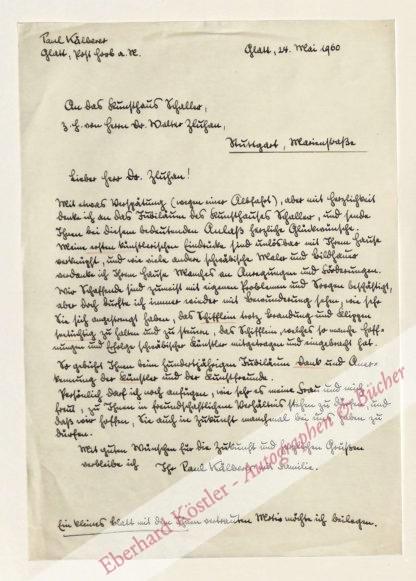 Paul Kälberer
Glatt, Post Horb a. N.
Glatt, 24. Mai 1960
An das Kunsthaus Schaller,
z. H. von Herrn Dr. Walter Zluhan,
Stuttgart, Marienstraße
Lieber Herr Dr. Zluhan!
Mit etwas Verspätung (wegen einer ), aber mit Herzlichkeit
denke ich an das Jubiläum des Kunsthauses Schaller, und sende
Ihnen bei diesem bedeutenden Anlaß herzliche Glückwünsche.
Meine ersten künstlerischen Eindrücke sind unlösbar mit Ihrem Hause
verknüpft, und wie viele andere schwäbische Maler und Bildhauer
verdanke ich Ihrem Hause Manches an Anregungen und Förderungen.
Wir Schaffende sind zumeist mit eigenen Problemen und Sorgen beschäftigt,
aber doch durfte ich immer wieder mit Bewunderung sehen, wie sehr
Sie sich angestrengt haben, das Schifflein trotz Brandung und Klippen
tüchtig zu halten und zu steuern, das Schifflein, welches so manche Hoff-
nungen und Erfolge schwäbischer Künstler mitgetragen und eingebracht hat.
So gebührt Ihnen beim hundertjährigen Jubiläum Dank und Aner-
kennung der Künstler und der Kunstfreunde.
Persönlich darf ich noch anfügen, wie sehr es meine Frau und mich
freut, zu Ihnen in freundschaftlichem Verhältnis stehen zu dürfen, und
daß wir hoffen, Sie auch in Zukunft manchmal bei uns sehen zu
dürfen.
Mit guten Wünschen für die Zukunft und herzlichen Grüßen
verbleibe ich Ihr Paul Kälberer mit Familie.
Ein kleines Blatt mit dem Ihnen vertrauten Motiv möchte ich beilegen.
Eberhard Köstler - Autographen & Bücher